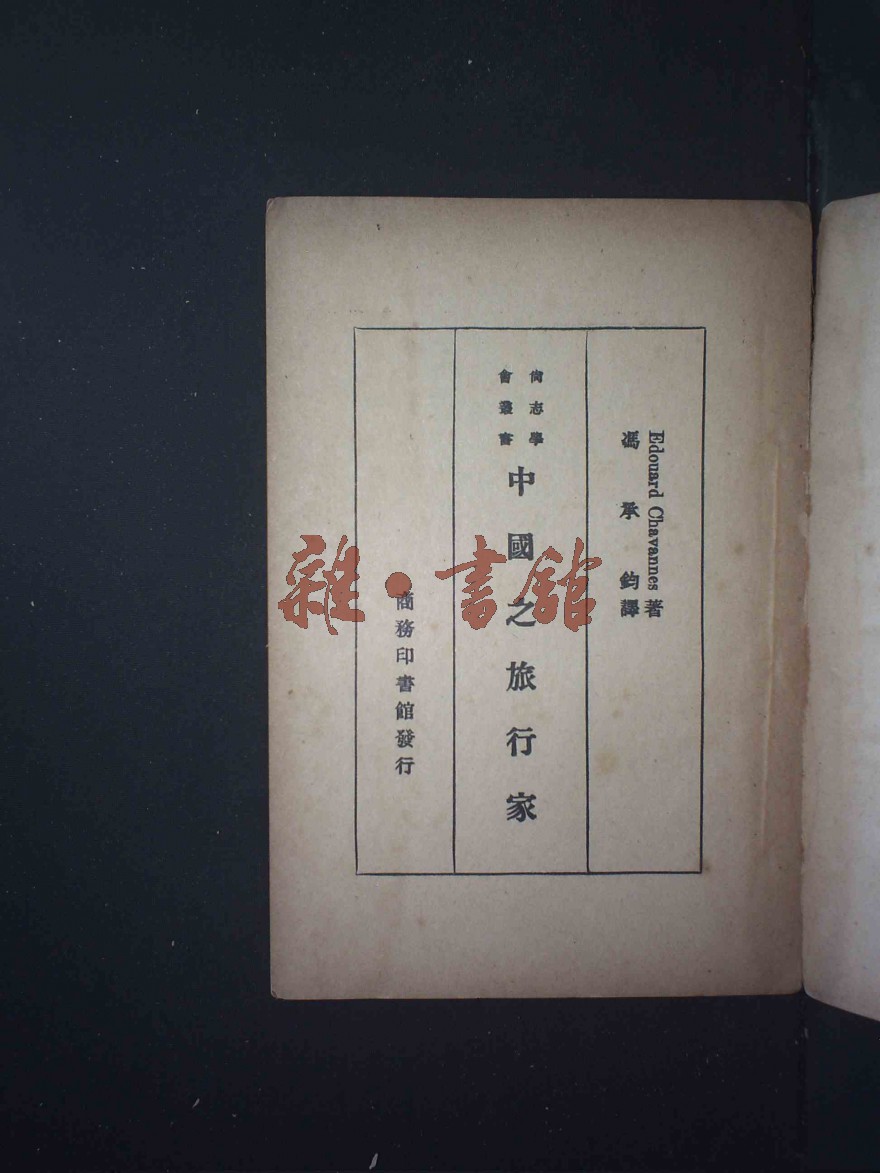 Edouard Chavannes 著
馮承鈞譯
尙志學
會叢書
中國之旅行家
商務印書館發行
雜·書館